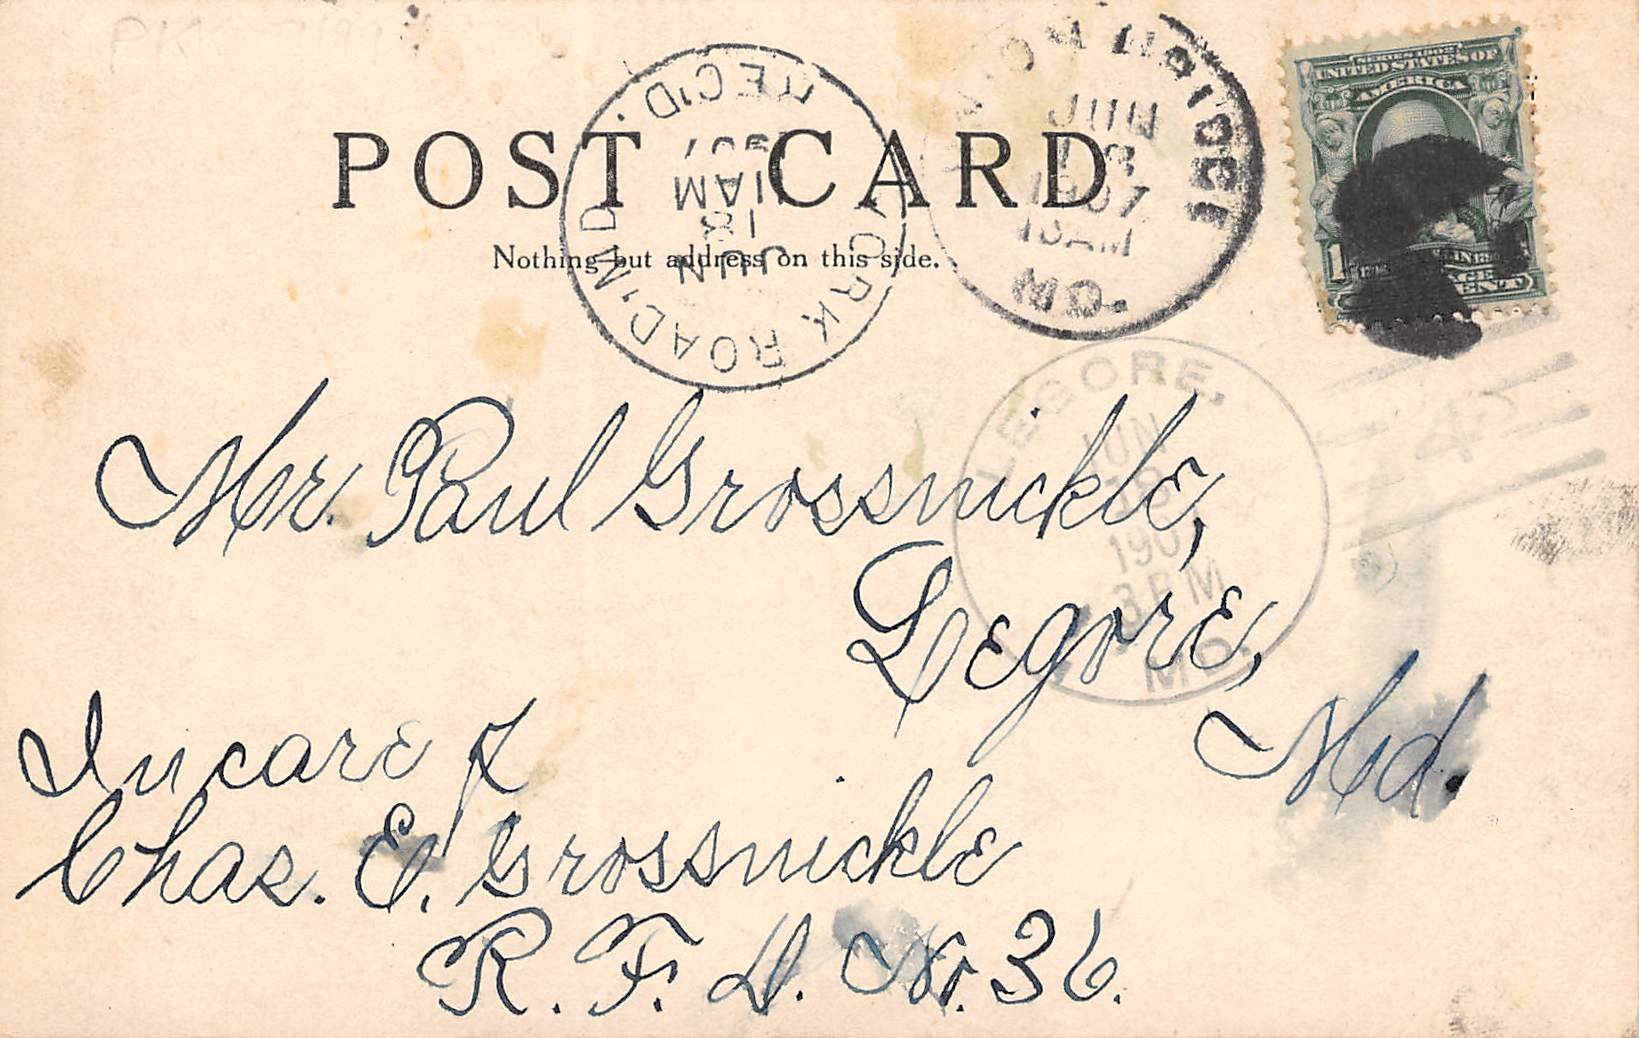 POST CARD
Nothing but address on this side.
YORK ROAD, MD. REC'D.
JUN
18
1AM
1907
UNION BRIDGE
18
1907
10AM
MD.
SERIES 1902
UNITED STATES OF
AMERICA
1
CENT
LEGORE,
JUN
18
190
3 P.M
MD.
4
Mr. Paul Grossnickle,
Legore,
Md.
In care of
Chas. E. Grossnickle
R. F. D. No. 36.